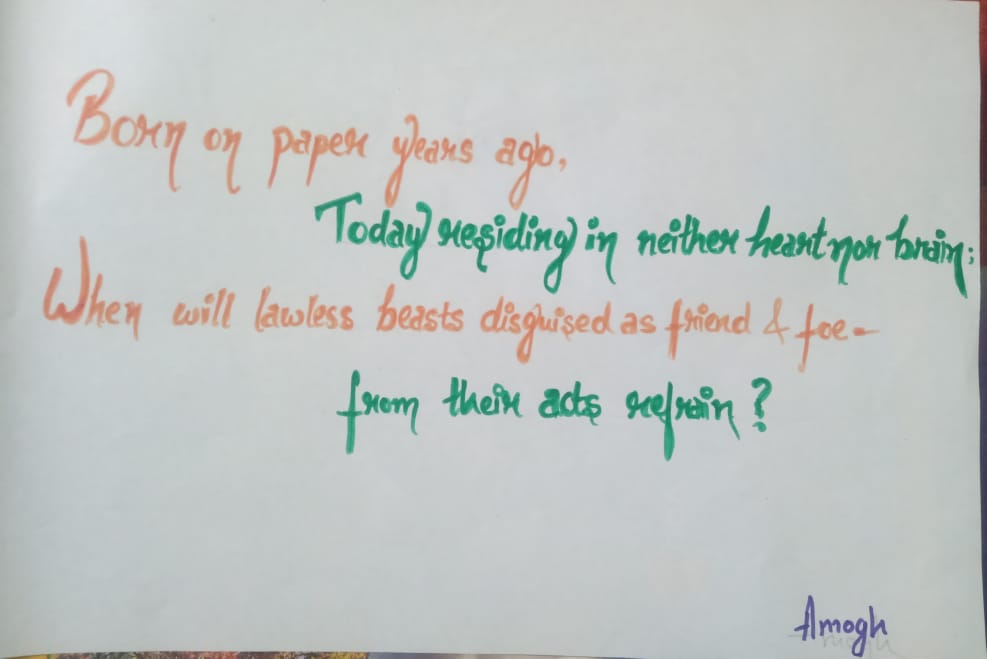 Born on paper years ago,
Today residing in neither heart nor brain;
When will lawless beasts disguised as friend & foe-
from their acts refrain?
Amogh